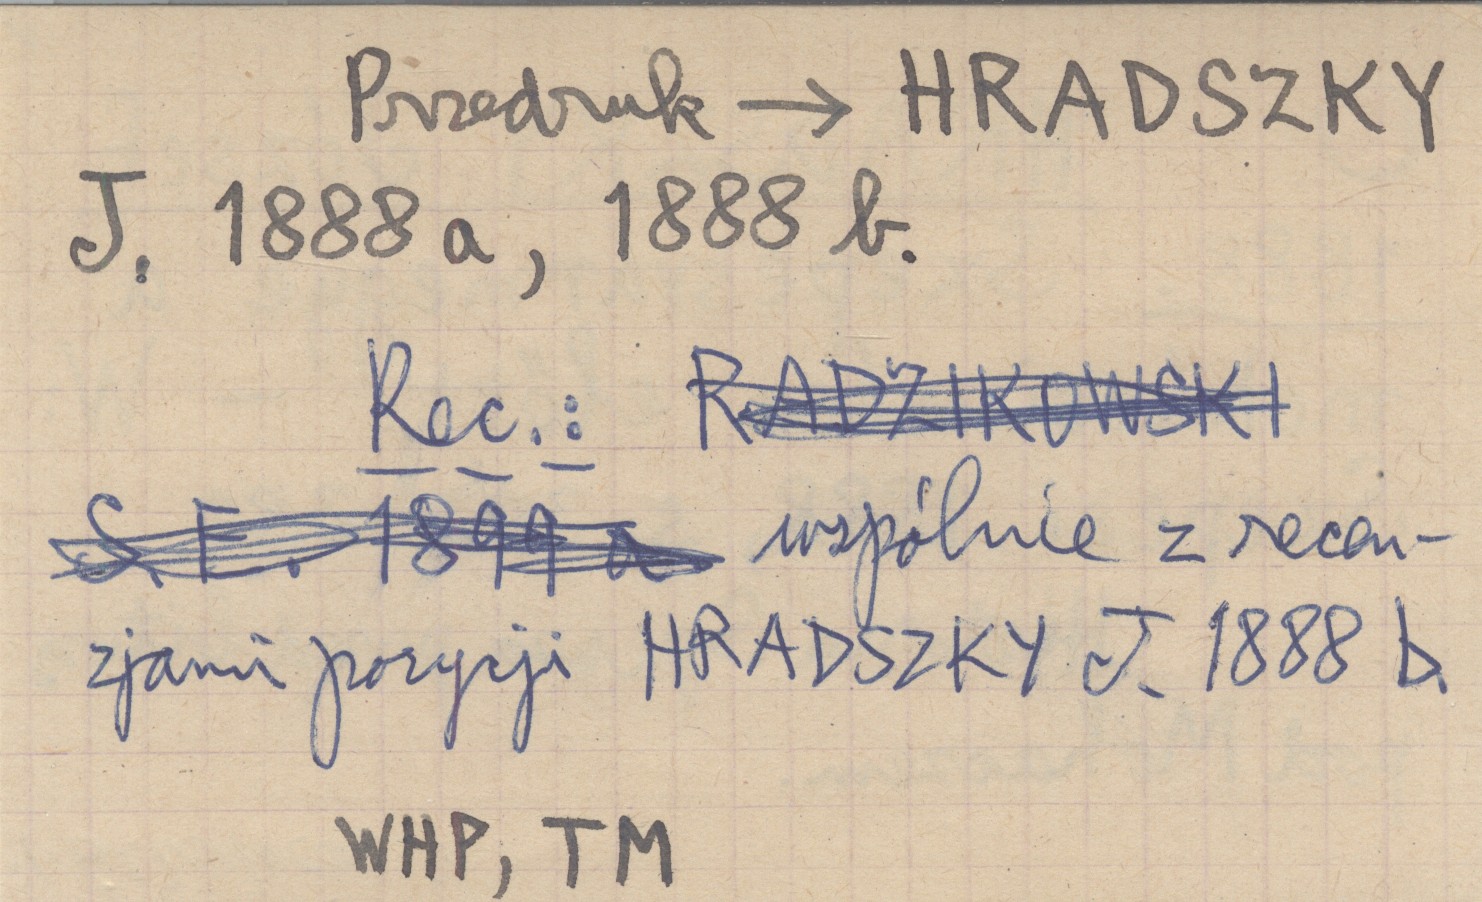 Przedruk → HRADSZKY
J. 1888 a, 1888 b.
Rec.: RADZIKOWSKI
S. E. 1899 a wspólnie z recen-
zjami pozycji HRADSZKY J. 1888 b.
WHP, TM